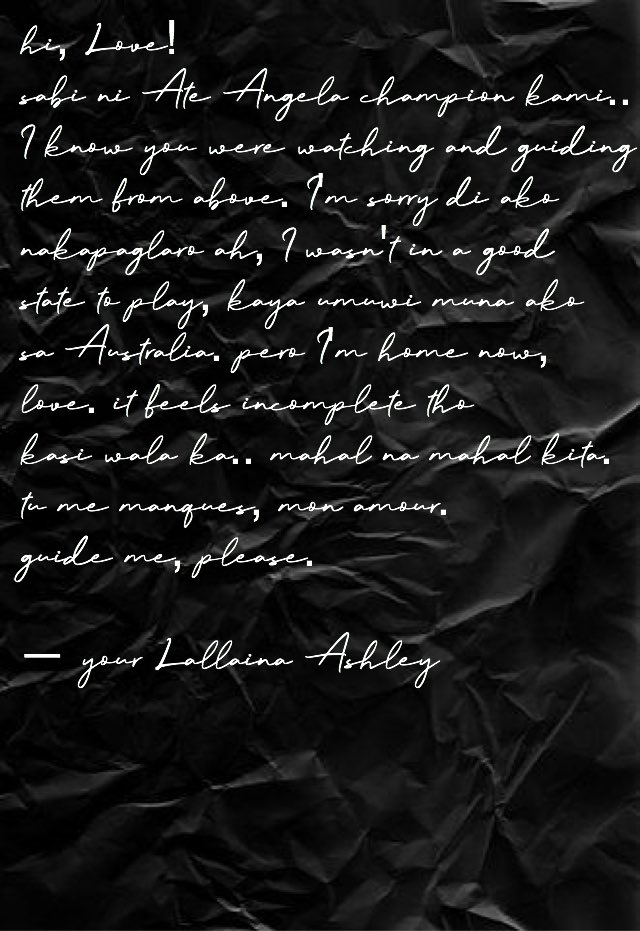 hi, Love!
sabi ni Ate Angela champion kami..
I know you were watching and guiding
them from above. I'm sorry di ako
nakapaglaro ah, I wasn't in a good
state to play, kaya umuwi muna ako
sa Australia. pero I'm home now,
love. it feels incomplete tho
kasi wala ka.. mahal na mahal kita.
tu me manques, mon amour.
guide me, please.
— your Lallaina Ashley